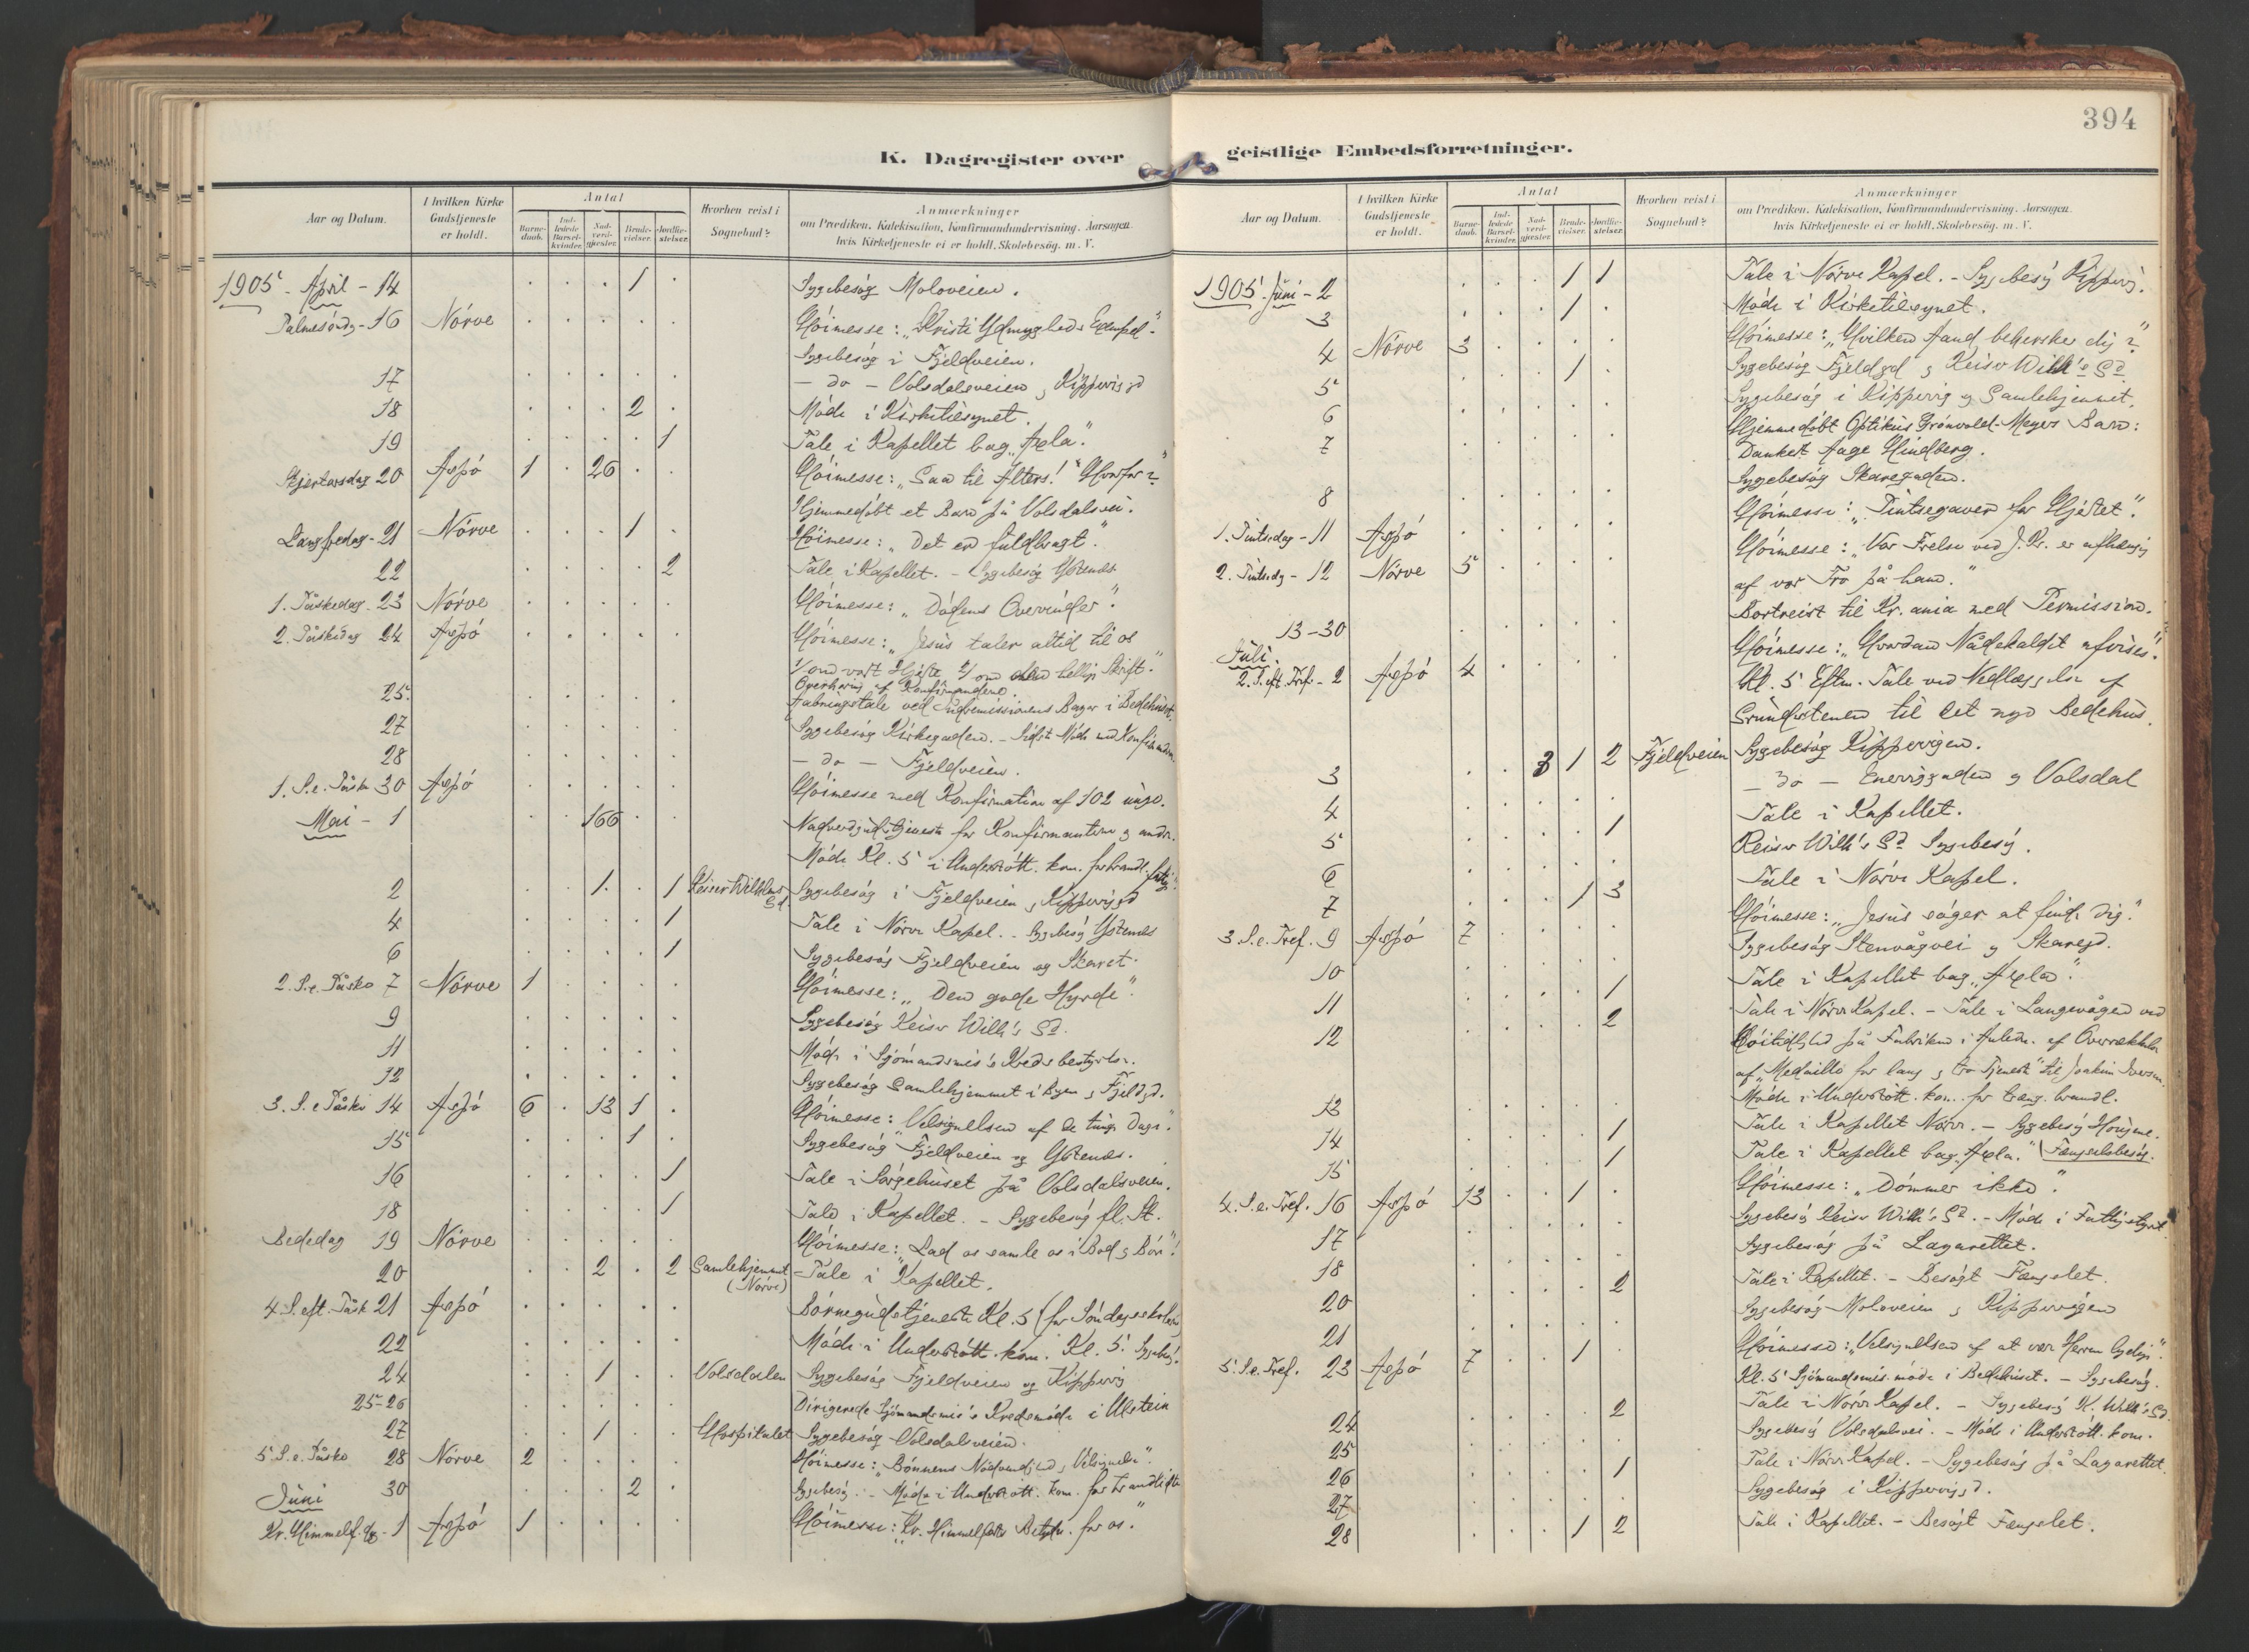 394
K. Dagregister over
geistlige Embedsforretninger.
Aar og Datum.
I hvilken Kirke Gudstjeneste er holdt.
Antal
Barne-daab.
Ind-ledede Barsel-kvinder.
Nad-verd-gjester.
Brude-vielser.
Jordfæ-stelser.
Hvorhen reist i Sognebud?
Anmærkninger
om Prædiken, Katekisation, Konfirmandundervisning, Aarsagen,
hvis Kirketjeneste ei er holdt, Skolebesøg. m. V.
1905 - April - 14 . . . 1 . Sygebesøg Moloveien.
Palmesøndg - 16 Nörve . . . . . Høimesse: "Kristi Ydmygheds Exempel."
Sygebesøg i Fjeldveien.
17 . . . . . - do - Volsdalsveien g Kipperviggd
18 . . . 2 . Møde i Kirketilsynet.
19 . . . . 1 Tale i Kapellet bag "Axla."
Skjertorsdag 20 Aspö 1 . 26 . . Høimesse: "Saa til Alters! Hvorfor?"
Hjemmedøbt et Barn på Volsdalsvei.
Langfredag - 21 Nörve . . . 1 . Høimesse: "Det er fuldbragt."
22 . . . . 2 Tale i Kapellet. - Sygebesøg Ystenes
1. Påskedag - 23 Nörve . . . . . Høimesse: "Dødens Overvinder."
2. Påskedag 24 Aspö . . . . . Høimesse: "Jesus taler altid til os
1/ om vort Hjerte 2/ om den hellige Skrift."
25. . . . . . Overhøring af Konfirmanderne.
Åabningstale ved Indremissionens Bazar i Bedehuset.
27 . . . . . Sygebesøg Kirkegaden. - Sidste Møde med Konfirmanderne.
28 . . . . . - do - Fjeldveien.
1. S.e. Påske 30 Aspö . . . . . Høimesse med Konfirmation af 102 unge.
Mai - 1 . . 166 . . Nadverdgudstjeneste for Konfirmanterne g andre.
Møde Kl. 5 i Understøtt. kom. for brandl.
2 . . 1 . 1 Keiser Wilhelms Gd. Sygebesøg i Fjeldveien g Kipperviggd
4 . . . . 1 Tale i Nörve Kapel. - Sygebesøg Ystenes
6 . . . . 1 Sygebesøg Fjeldveien og Skaret.
2. S.e. Påske 7 Nörve 1 . . . . Høimesse: "Den gode Hyrde".
9 . . . . . Sygebesøg Keiser Wilh's Gd.
11 . . . . . Møde i Sjömandsmis's Kredsbestyrelse.
12 . . . . . Sygebesøg Gamlehjemmet i Byen g Fjeldgd.
3. S.e. Påske 14 Aspö 6 . 13 1 . Høimesse: "Velsignelsen af de tunge Dage."
15 . . . 1 . Sygebesøg Fjeldveien og Ystenes.
16 . . . . 1 Tale i Sørgehuset på Volsdalsveien.
18 . . . . 1 Tale i Kapellet. - Sygebesøg fl. St.
Bededag 19 Nörve . . . . . Høimesse: "Lad os samle os i Bod g Bøn!"
20 . . 2 . 2 Gamlehjemmet (Nörve) - Tale i Kapellet.
4. S. eft. Påsk 21 Aspö . . . . . Børnegudstjeneste Kl. 5 (for Søndagsskolerne)
22 . . . . . Møde i Understøtt. kom. Kl. 5. Sygebesøg.
24 . . 1 . . Volsdalen Sygebesøg Fjeldveien og Kipperviq
25-26 . . . . . Dirigerede Sjömandsmis's Kredsmøde i Ulstein
27 . . 1 . . Hospitalet Sygebesøg Volsdalsveien.
5. S.e. Påske 28 Nörve 2 . . . . Høimesse: "Bønnens Nødvendighed g Velsignelse".
30 . . . 2 . Sygebesøg. - Møde i Understøtt. kom. for brandlidte
Juni
Kr. Himmelf. dg - 1 Aspö 1 . . . . Høimesse: "Kr. Himmelfarts Betydn. for os."
Aar og Datum.
I hvilken Kirke Gudstjeneste er holdt.
Antal
Barne-daab.
Ind-ledede Barsel-kvinder.
Nad-verd-gjester.
Brude-vielser.
Jordfæ-stelser.
Hvorhen reist i Sognebud?
Anmærkninger
om Prædiken, Katekisation, Konfirmandundervisning, Aarsagen,
hvis Kirketjeneste ei er holdt, Skolebesøg. m. V.
1905. Juni - 2 . . . 1 1 Tale i Nörve Kapel. - Sygebesøg Kipperviq.
3 . . . 1 . Møde i Kirketilsynet.
4 Nörve 3 . . . . Høimesse: "Hvilken Aand behersker dig?"
5 . . . 1 . Sygebesøg Fjeldgd g Keiser Wilh's Gd.
6 . . . . . Sygebesøg i Kipperviq g Gamlehjemmet.
7 . . . . . Hjemmedøbt Optikus Grønvold-Meyers Barn:
Dankert Aage Hindberg.
8 . . . . . Sygebesøg Skaregaden.
1. Pintsedag - 11 Aspö . . . . . Høimesse: "Pintsegaven for Hjertet".
2. Pintsedg - 12 Nörve 5 . . . . Høimesse: "Vor Frelse ved J. Kr. er afhængig
af vor Tro på ham."
13-30 . . . . . Bortreist til Kr.ania med Permission.
Juli.
2. S. eft. Tref. - 2 Aspö 4 . . . . Høimesse: "Hvordan Nådekaldet afvises".
Kl. 5 Eftm. Tale ved Nedlæggelse af
Grundstenen til det nye Bedehus.
3 . . 3 1 2 Fjeldveien Sygebesøg Kippervigen.
4 . . . . . - do - Enerhaggaden g Volsdal
5 . . . . 1 Tale i Kapellet.
6 . . . . . Keiser Wilh's Gd Sygebesøg.
7 . . . 1 3 Tale i Nörve Kapel.
3. S.e. Tref. 9 Aspö 7 . . . . Høimesse: "Jesus søger at finde dig."
10 . . . . . Sygebesøg Stenvågvei g Skaregd.
11 . . . . 1 Tale i Kapellet bag "Axla".
12 . . . . 2 Tale i Nörve Kapel. - Tale i Langevågen ved
Høitidlighed på Fabriken i Anledn. af Overrækkelse
af "Medaille for lang g tro Tjeneste" til Joakim Iversen.
13 . . . . . Møde i Understøtt. kom. for træng. brandl.
14 . . . . 1 Tale i Kapellet Nörve. - Sygebesøg
15 . . . . 1 Tale i Kapellet bag "Axla." Fængselsbesøg.
4. S.e. Tref. 16 Aspö 13 . . 1 . Høimesse: "Dømmer ikke".
17 . . . . . Sygebesøg Keiser Wilh's Gd. - Møde i Fattigstyret
18 . . . . . Sygebesøg på Lazarettet.
20 . . . . 2 Tale i Kapellet. - Besøgt Fængslet.
21 . . . . . Sygebesøg Moloveien g Kippervigen
5. S.e. Tref. 23 Aspö 7 . . 1 . Høimesse: "Velsignelsen af at være Herren lydig".
Kl. 5 Sjömandsmis. møde i Bedehuset. - Sygebesøg.
24 . . . . 2 Tale i Nörve Kapel. - Sygebesøg K. Wilh's Gd.
25 . . . . . Sygebesøg Volsdalsvei. - Møde i Understøtt. kom.
26 . . . . 1 Tale i Nörve Kapel. - Sygebesøg på Lazarettet.
27 . . . . . Sygebesøg i Kipperviggd.
28 . . . 1 2 Tale i Kapellet. - Besøgt Fængslet.